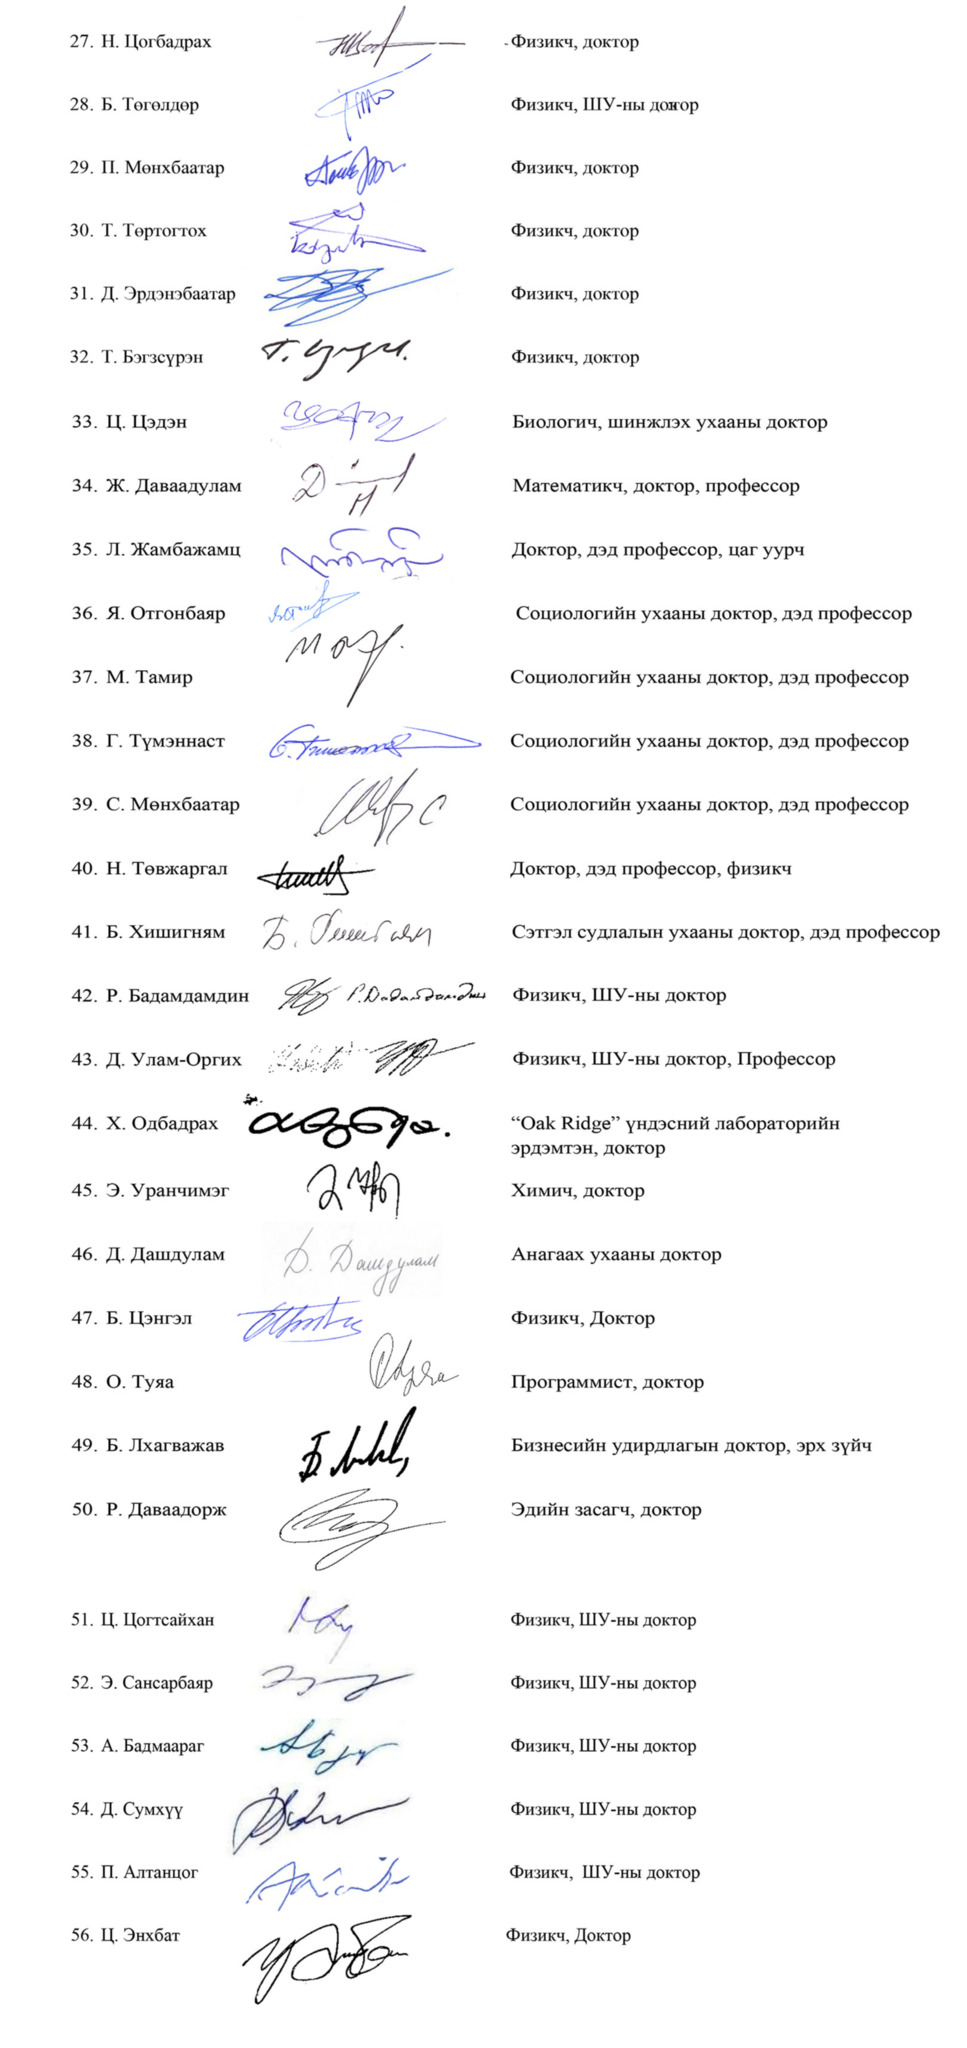 27. Н. Цогбадрах Физикч, доктор
28. Б. Төгөлдөр Физикч, ШУ-ны доктор
29. П. Мөнхбаатар Физикч, доктор
30. Т. Төртогтох Физикч, доктор
31. Д. Эрдэнэбаатар Физикч, доктор
32. Т. Бэгзсүрэн Физикч, доктор
33. Ц. Цэдэн Биологич, шинжлэх ухааны доктор
34. Ж. Даваадулам Математикч, доктор, профессор
35. Л. Жамбажамц Доктор, дэд профессор, цаг уурч
36. Я. Отгонбаяр Социологийн ухааны доктор, дэд профессор
37. М. Тамир Социологийн ухааны доктор, дэд профессор
38. Г. Түмэннаст Социологийн ухааны доктор, дэд профессор
39. С. Мөнхбаатар Социологийн ухааны доктор, дэд профессор
40. Н. Төвжаргал Доктор, дэд профессор, физикч
41. Б. Хишигням Сэтгэл судлалын ухааны доктор, дэд профессор
42. Р. Бадамдамдин Р. Бадамдамдин Физикч, ШУ-ны доктор
43. Д. Улам-Оргих Физикч, ШУ-ны доктор, Профессор
44. Х. Одбадрах “Oak Ridge” үндэсний лабораторийн
эрдэмтэн, доктор
45. Э. Уранчимэг Химич, доктор
46. Д. Дашдулам Д. Дашдулам Анагаах ухааны доктор
47. Б. Цэнгэл Физикч, Доктор
48. О. Туяа Программист, доктор
49. Б. Лхагважав Бизнесийн удирдлагын доктор, эрх зүйч
50. Р. Даваадорж Эдийн засагч, доктор
51. Ц. Цогтсайхан Физикч, ШУ-ны доктор
52. Э. Сансарбаяр Физикч, ШУ-ны доктор
53. А. Бадмаараг Физикч, ШУ-ны доктор
54. Д. Сумхүү Физикч, ШУ-ны доктор
55. П. Алтанцог Физикч, ШУ-ны доктор
56. Ц. Энхбат Физикч, Доктор